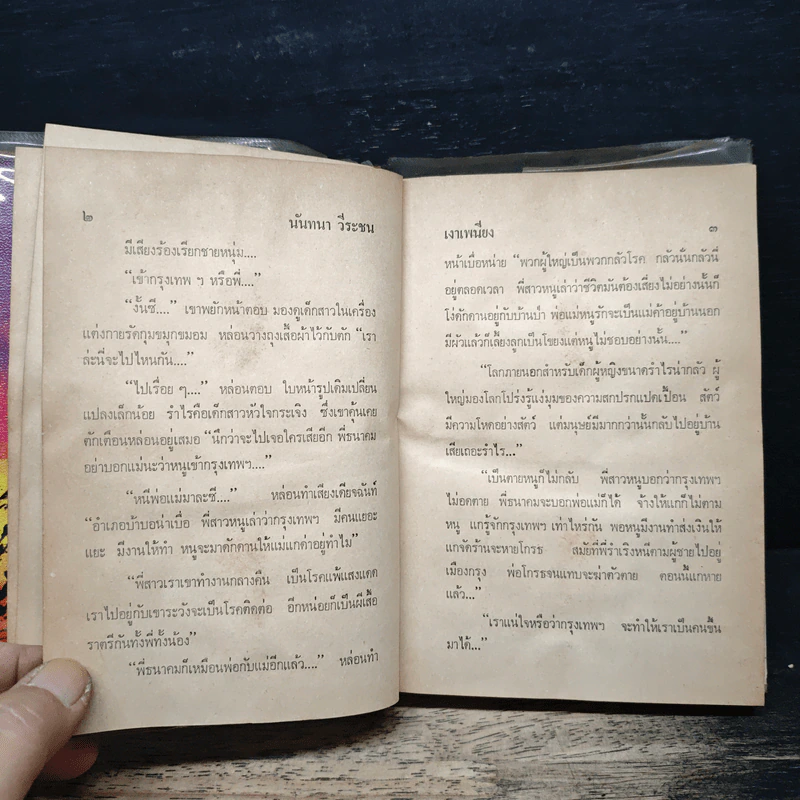 ๒ นันทนา วีระชน
มีเสียงร้องเรียกชายหนุ่ม....
“เข้ากรุงเทพ ฯ หรือพี่....”
“งั้นซี....” เขาพยักหน้าตอบ มองดูเด็กสาวในเครื่อง
แต่งกายรัดกุมขมุกขมอม หล่อนวางถุงเสื้อผ้าไว้กับตัก “เรา
ล่ะนี่จะไปไหนกัน....”
“ไปเรื่อย ๆ....” หล่อนตอบ ใบหน้ารูปเดิมเปลี่ยน
แปลงเล็กน้อย รำไรคือเด็กสาวหัวใจกระเจิง ซึ่งเขาคุ้นเคย
ตักเตือนหล่อนอยู่เสมอ “นึกว่าจะไปเจอใครเสียอีก พี่ธนาคม
อย่าบอกแม่นะว่าหนูเข้ากรุงเทพฯ....”
“หนีพ่อแม่มาละซี....” หล่อนทำเสียงเดียดฉันท์
“อำเภอบ้าบอน่าเบื่อ พี่สาวหนูเล่าว่ากรุงเทพฯ มีคนแยอะ
แยะ มีงานให้ทำ หนูจะมาดักดานให้แม่แกด่าอยู่ทำไม”
“พี่สาวเราเขาทำงานกลางคืน เป็นโรคแพ้แสงแดด
เราไปอยู่กับเขาระวังจะเป็นโรคติดต่อ อีกหน่อยก็เป็นผีเสื้อ
ราตรีกันทั้งพี่ทั้งน้อง”
“พี่ธนาคมก็เหมือนพ่อกับแม่อีกแล้ว....” หล่อนทำ
เงาเพนียง ๓
หน้าเบื่อหน่าย “พวกผู้ใหญ่เป็นพวกกลัวโรค กลัวนั่นกลัวนี่
อยู่ตลอดเวลา พี่สาวหนูเล่าว่าชีวิตมันต้องเสี่ยงไม่อย่างนั้นก็
โง่ดักดานอยู่กับบ้านป่า พ่อแม่หนูรักจะเป็นแม่ค้าอยู่บ้านนอก
มีผัวแล้วก็เลี้ยงลูกเป็นโขยงแต่หนูไม่ชอบอย่างนั้น....”
“โลกภายนอกสำหรับเด็กผู้หญิงขนาดรำไรน่ากลัว ผู้
ใหญ่มองโลกโปร่งรู้แง่มุมของความสกปรกแปดเปื้อน สัตว์
มีความโหดอย่างสัตว์ แต่มนุษย์มีมากกว่านั้นกลับไปอยู่บ้าน
เสียเถอะรำไร...”
“เป็นตายหนูก็ไม่กลับ พี่สาวหนูบอกว่ากรุงเทพฯ
ไม่อดตาย พี่ธนาคมจะบอกพ่อแม่ก็ได้ จ้างให้แกก็ไม่ตาม
หนู แกรู้จักกรุงเทพฯ เท่าไหร่กัน พอหนูมีงานทำส่งเงินให้
แกจัดร้านจะหายโกรธ สมัยที่พี่รำเริงหนีตามผู้ชายไปอยู่
เมืองกรุง พ่อโกรธจนแทบจะฆ่าตัวตาย ตอนนี้แกหาย
แล้ว...”
“เราแน่ใจหรือว่ากรุงเทพฯ จะทำให้เราเป็นคนขึ้น
มาได้...”